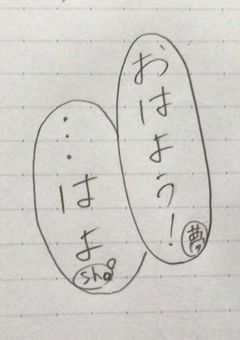 おはよう！
夢
…はよ
sho